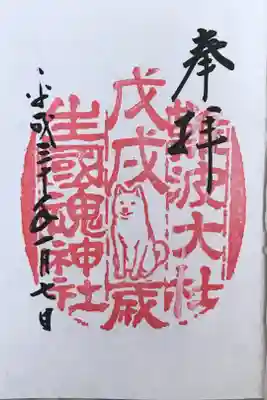 奉拝
難波大社
戊戌歳
生國魂神社
平成三十年一月七日